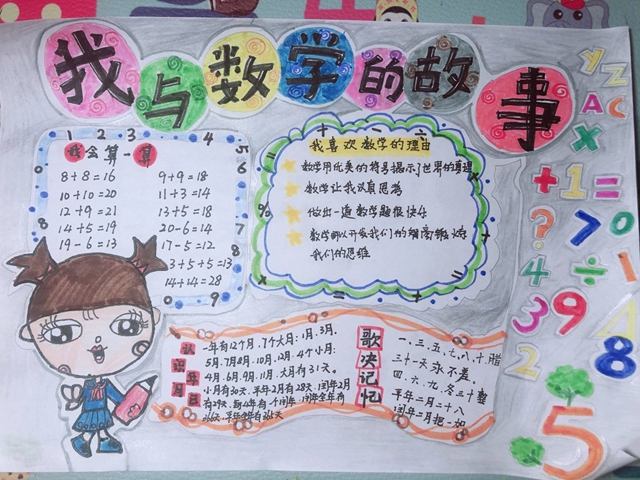 我与数学的故事
1 2 3 4 5
我会算一算
8+8=16
9+9=18
10+10=20
11+3=14
12+9=21
13+5=18
14+5=19
20-6=14
19-6=13
17-5=12
3+5+5=13
14+14=28
6
7
8
9
0
我喜欢数学的理由
数学用优美的符号揭示了世界的真理
数学让我认真思考
做出一道数学题很快乐
数学可以开发我们的脑
我们的思维
认识年月日
一年有12个月.7个大月:1月.3月.
5月.7月8月.10月.12月.4个小月:
4月.6月.9月.11月.大月有31天.
小月有30天.平年2月有28天.闰年2月
有29天.每4年有一个闰年.闰年全年有
366天.平年全年有365天
歌决记忆
一.三.五.七.八.十.腊
三十一天永不差.
四.六.九.冬三十整
平年二月二十八
闰年二月把一加
Y Z
A C
X
+ 1 =
? 7 0
4 ÷ 1
3 9 4
2 8
5